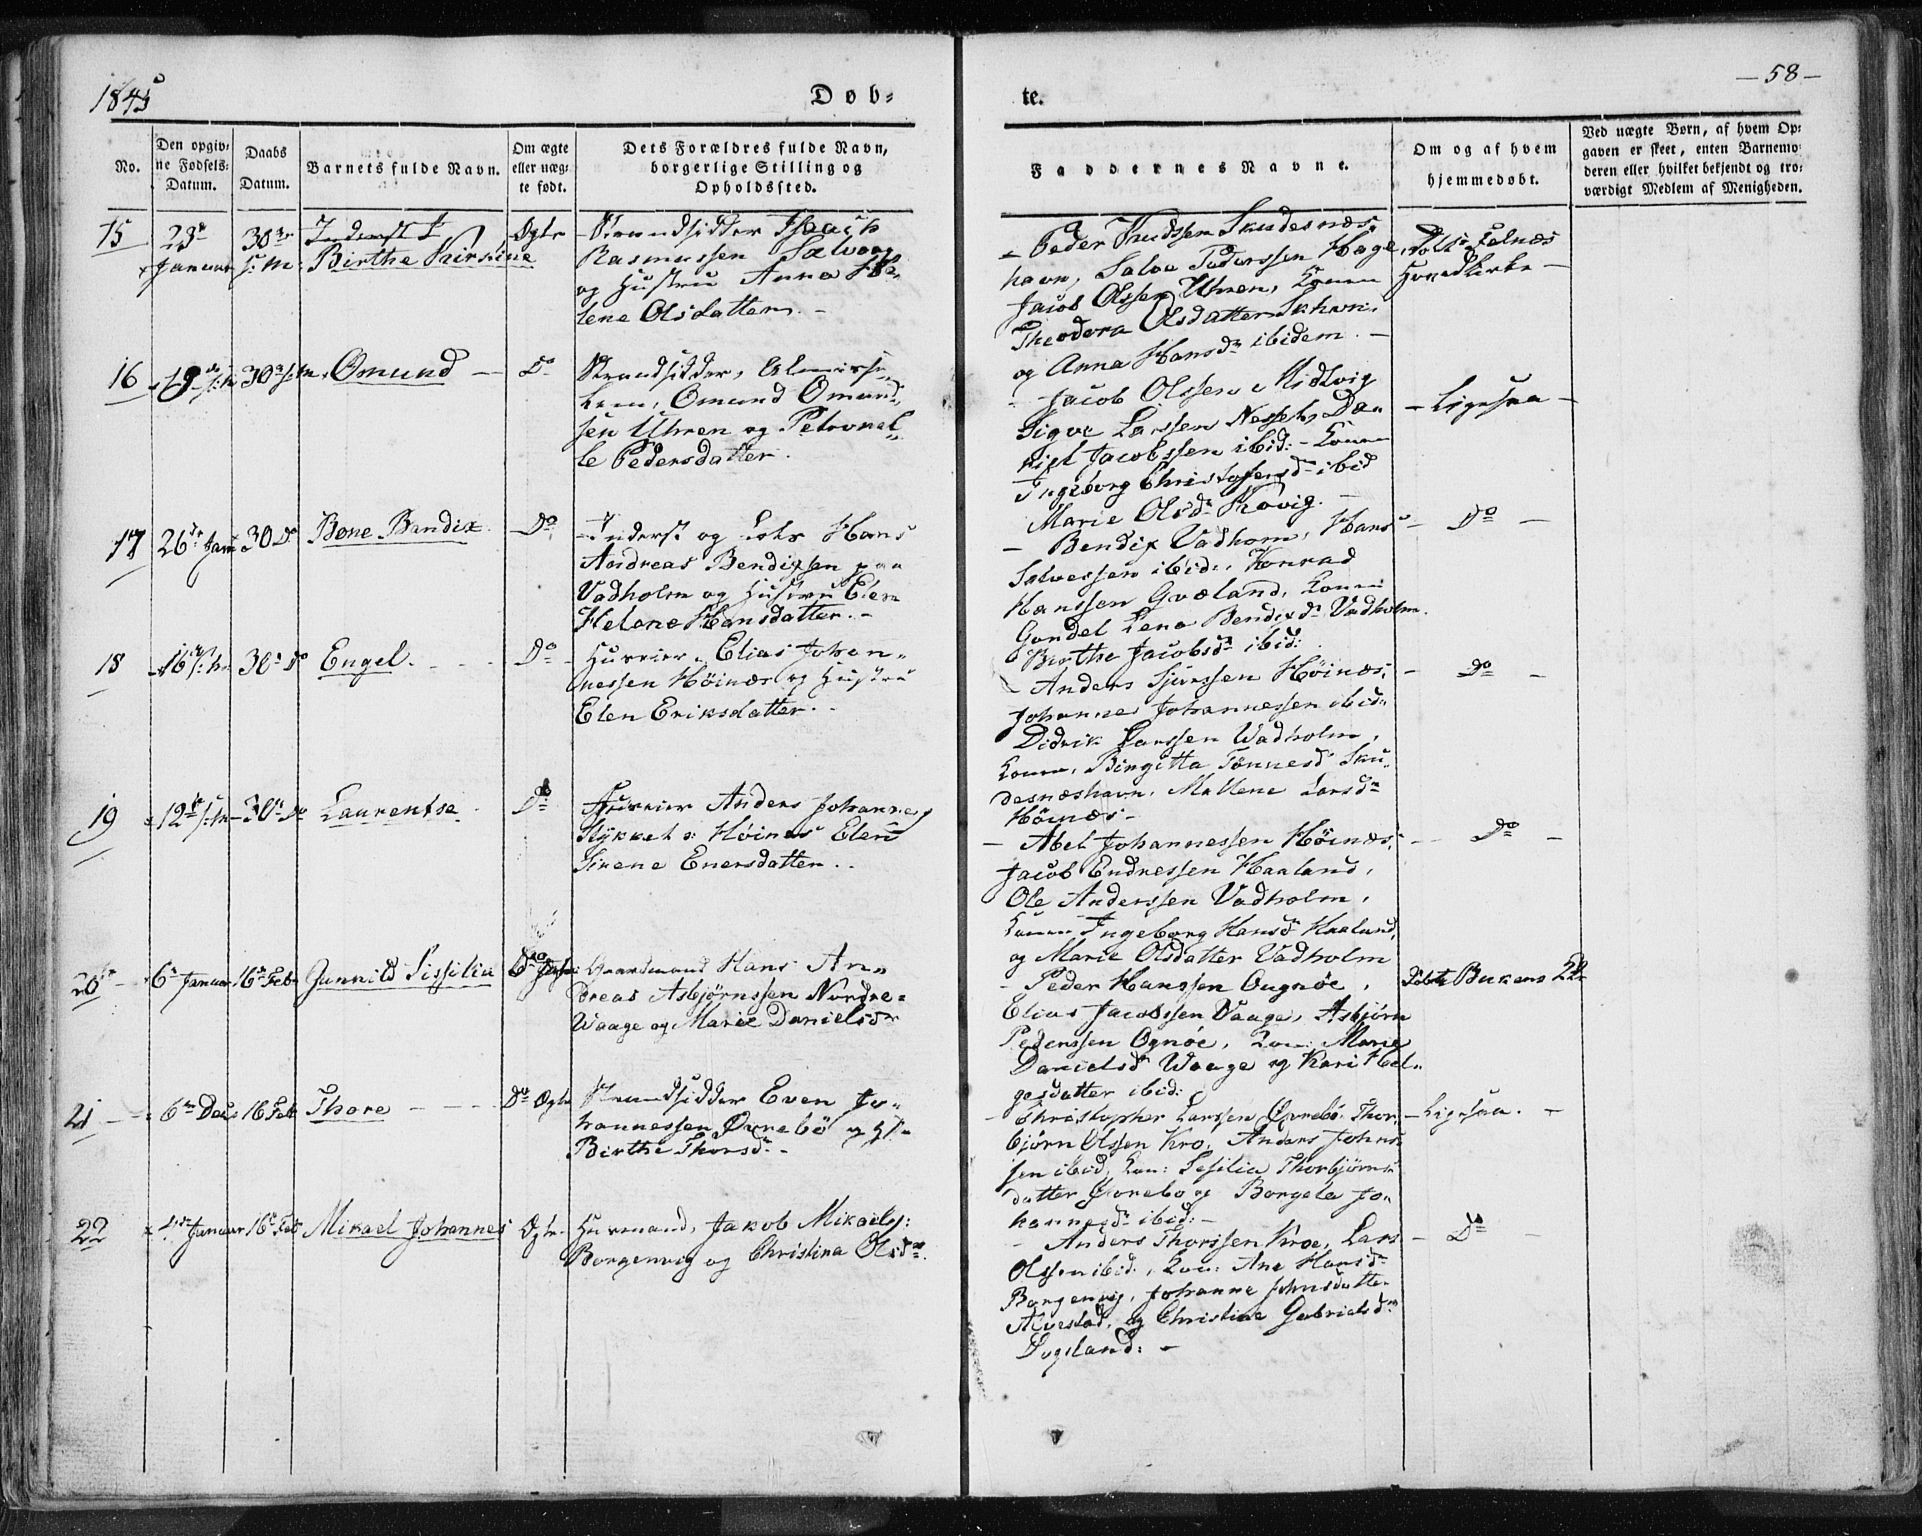 1845
Døb-
te.
— 58 —
No.
Den opgiv-
ne Fødsels-
Datum.
Daabs
Datum.
Barnets fulde Navn.
Om ægte
eller uæg-
te født.
Dets Forældres fulde Navn,
borgerlige Stilling og
Opholdssted.
Faddernes Navne.
Om og af hvem
hjemmedøbt.
Ved uægte Børn, af hvem Op-
gaven er skeet, enten Barnemo-
deren eller hvilket bekjendt og tro-
værdigt Medlem af Menigheden.
15
23de
Januar
30te
s: M:
Birthe Kirstine
Ægte
Strandsidder Isach
Rasmussen
og Hustru Anna He-
lene Olsdatter. -
- Peder Knudssen Skudesnæs-
havn, Salve Pederssen Hage,
Jacob Olssen Uhren, Konen
Theodora Olsdatter Skhavn:
og Anna Hansdr ibidem. -
Falnæs
Hovedkirke -
16
19de s: M
30te s: M.
Omund
Do
Strandsidder, Almisse-
lem, Omund Omund-
sen Uhren og Petronel-
le Pedersdatter.
- Jacob Olssen Midtvig
Sigve Larssen Nesset, Da-
niel Jacobssen ibid: - Konen
Ingeborg Christofersdr ibid
Marie Olsdr
- Ligesaa -
17
26de Janu
30 Do
Bone Bendix.
Do
Inderst og Hans
Andreas Bendixsen paa
Vadholm og Hustru Elen
Helene Hansdatter. -
- Bendix Vadhom, Hans
Salvessen ibid:, Konrad
Hanssen Gvæland, Konen
Gundel Lena Bendixdr Vadholm.
Birthe Jacobsdr ibid:
- Do -
18
16 s: M
30te Do
Engel.
Do
Elias Johan-
nessen Høinæs og Hustru
Elen Eriksdatter. -
- Anders Sjurssen Høinæs,
Johannes Johannessen ibid:
Didrik Larssen Wadholm,
Konen, Birgitta Tønnesd Sku-
desnæshavn, Mallene Larsdr
Høinæs -
- Do -
19
12te s: M
30te Do
Laurentse
Do
Anders Johannes
Stykket o: Høinæs Elen
Sirene Enersdatter. .
- Abel Johannessen Høinæs,
Jacob Endressen Haaland,
Ole Anderssen Vadholm,
Konen Ingeborg Hansd Haaland,
og Marie Olsdatter Vadholm
- Do -
20
6te Januar
16te Febr
Gunnild Sissilia
Gaardmand Hans An-
dreas Asbjørnssen Nordre-
Waage og Marie Danielsdr
- Peder Hanssen Ougnøe,
Elias Jacobssen Vaage, Asbjørn
Pederssen Ognøe, Kon: Marie
Danielsd Waage og Kari Hel-
gesdatter ibid:
Døbt i Bukens
21
6te Decb
16 Feb
Thore
Do Ægte
Strandsidder Even Jo-
hannessen Øvrebö og H:
Birthe Thorsdr -
- Christopher Larssen Øvrebö, Thor-
bjørn Olssen Kro, Anders Johns-
sen ibid, Kon: Sesilia Thorbjørns-
datter Øvrebo og Borgela Jo-
hannesdr ibid: -
- Ligesaa. -
22
4de Januar
16de Feb
Mikael Johannes
Ægte.
Huusmand, Jakob Mikaels:
Borgenvig og Christina Olsdr.
- Anders Thorssen Kroe, Lars
Olssen ibid:, Kon: Ane Hansdr
Borgenvig, Johanne Johnsdatter
Alvestad, og Christine Gabrielsdr
- Do -